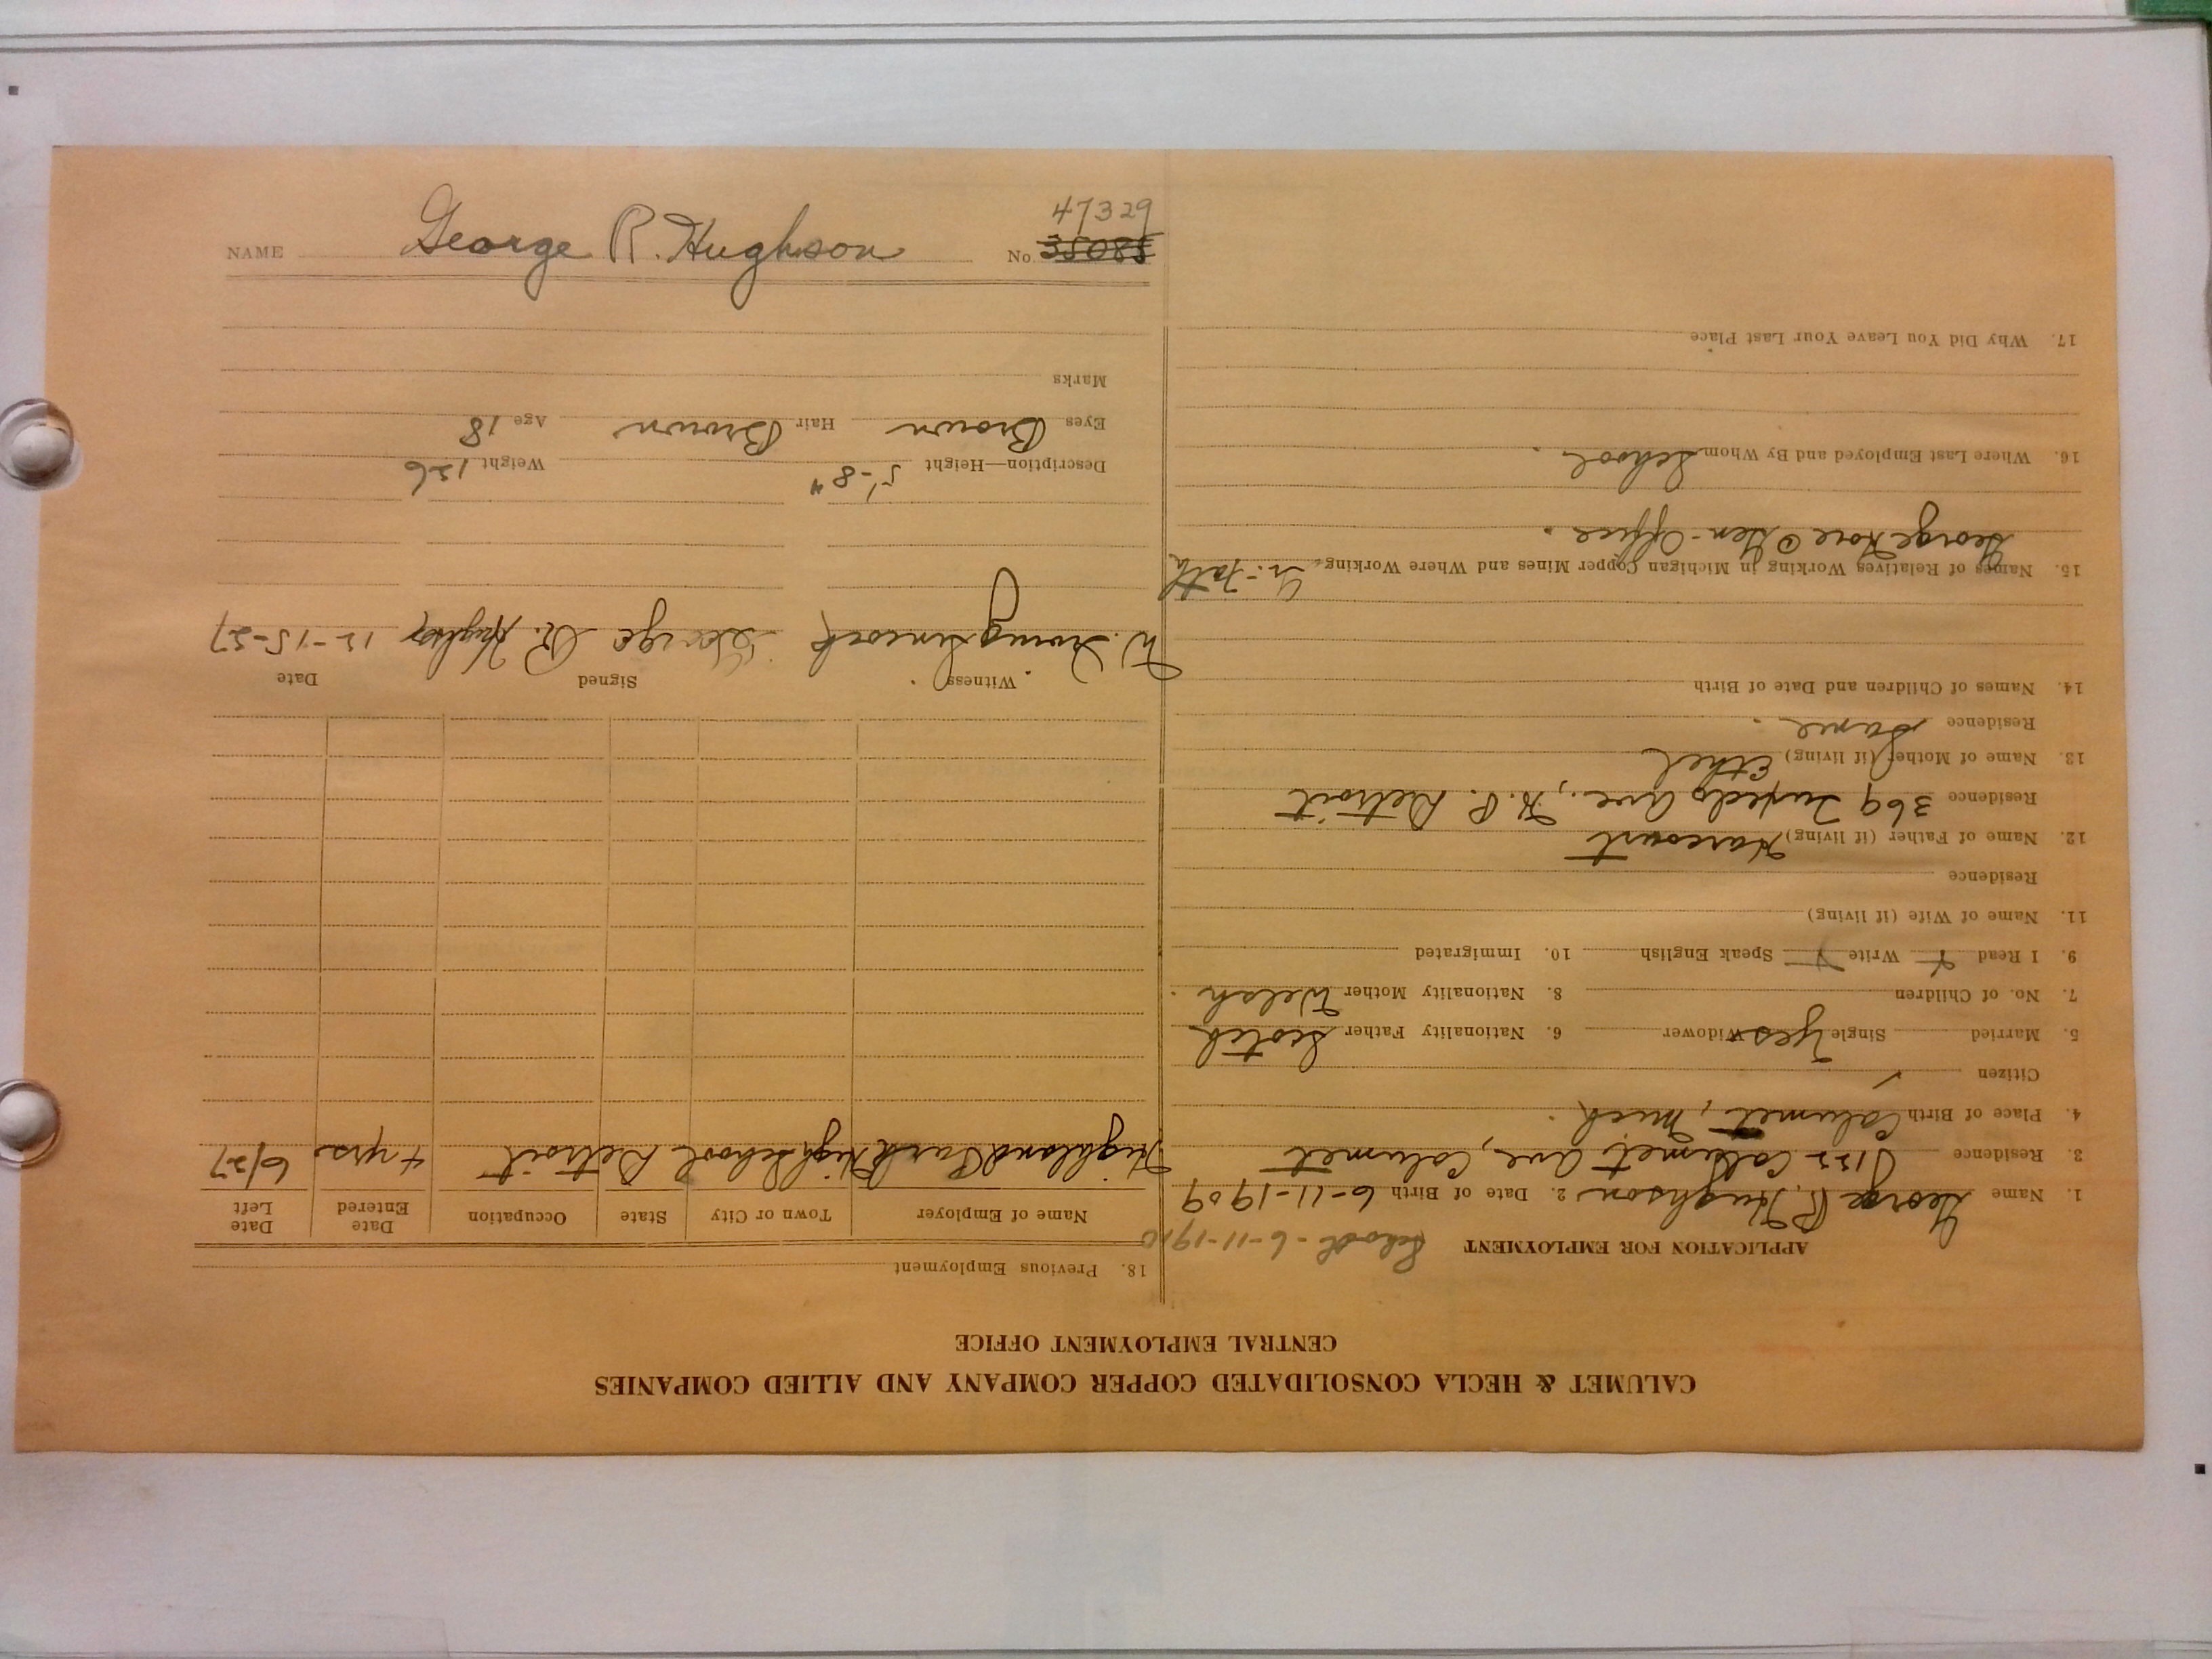 CALUMET & HECLA CONSOLIDATED COPPER COMPANY AND ALLIED COMPANIES
CENTRAL EMPLOYMENT OFFICE
APPLICATION FOR EMPLOYMENT 6-11-1910
1. Name George R. Hughson 2. Date of Birth 6-11-1909
3. Residence Calumet Ave, Calumet
4. Place of Birth Calumet, Mich.
Citizen ✓
5. Married Single Yes Widower 6. Nationality Father Scotch
7. No. of Children 8. Nationality Mother Welsh.
9. I Read Write Speak English 10. Immigrated
11. Name of Wife (if living)
Residence
12. Name of Father (if living) Harcourt
Residence 369 Tuxedo Ave., H.P. Detroit
13. Name of Mother (if living) Ethel
Residence Same.
14. Names of Children and Date of Birth
15. Names of Relatives Working in Michigan Copper Mines and Where Working
George Gen-Office.
16. Where Last Employed and By Whom School.
17. Why Did You Leave Your Last Place
18. Previous Employment
Name of Employer Town or City State Occupation Date Entered Date Left
Highland Park High School Detroit 4 yrs. 6/27
Witness Signed Date
W. George R. Hughson 12-15-27
Description—Height 5'-8" Weight 126
Eyes Brown Hair Brown Age 18
Marks
NAME George R. Hughson No. 35085
47329